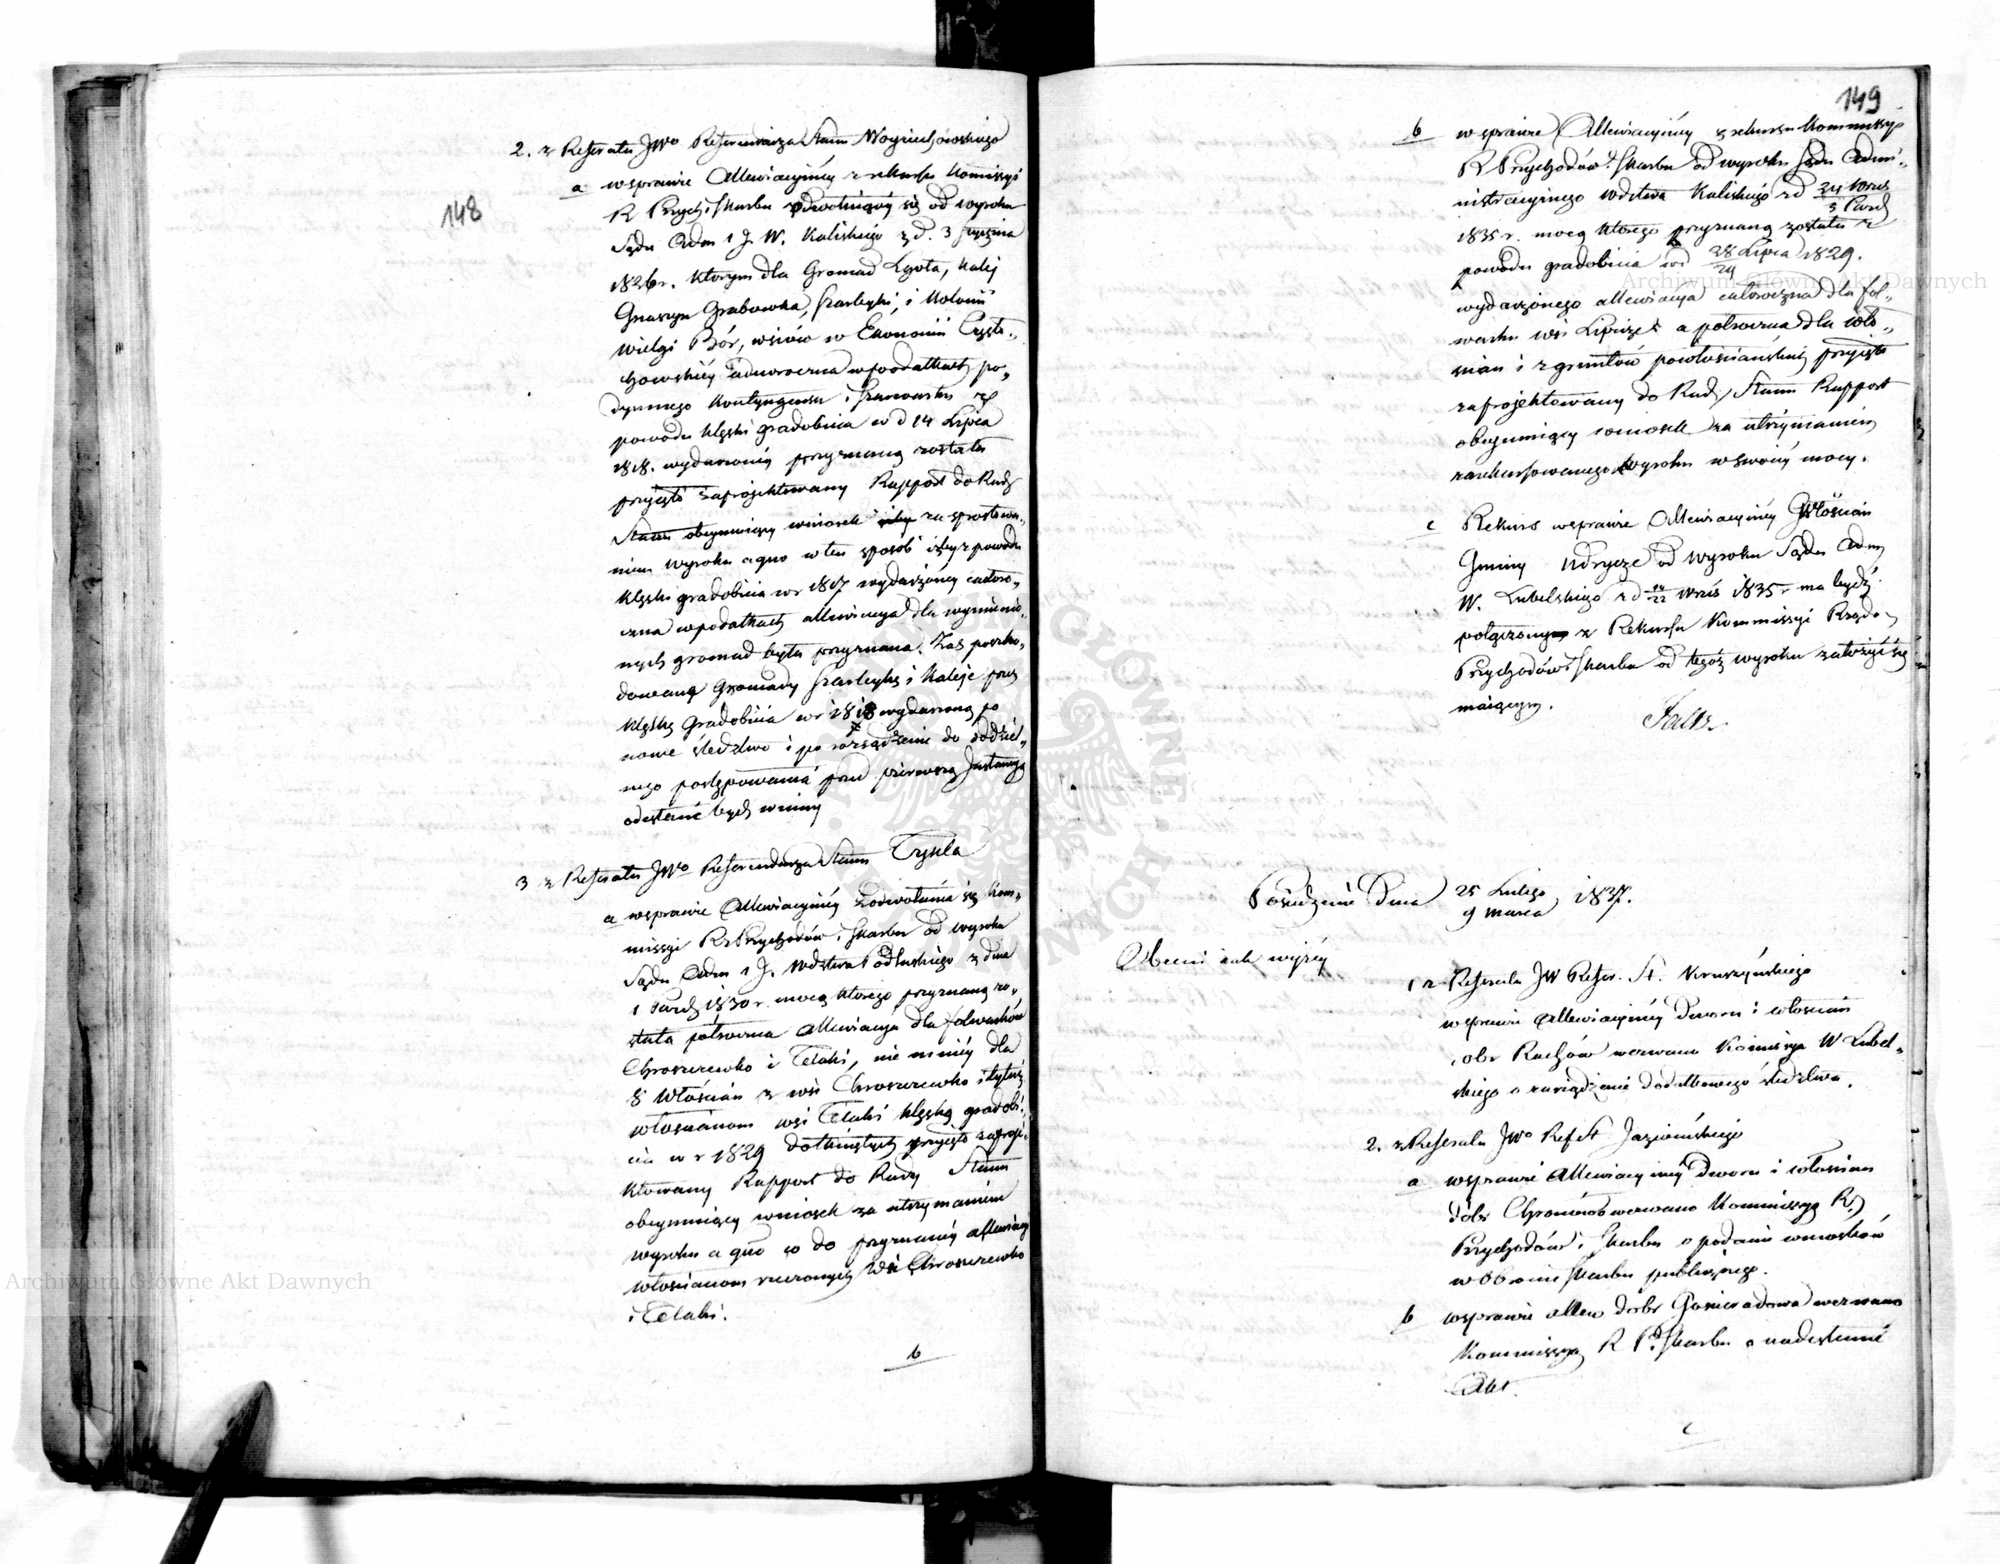 148
2. z Referatu JWo Referendarza Stanu Woyciechowskiego
a w sprawie Allewiacyjnéy z rekursu Kommissyi
R Przych i Skarbu odwołuiącéy się od wyroku
Sądu Adm 1 J. W. Kaliskiego z d. 3 Stycznia
1826 r. którym dla Gromad Lgota, Kaléj
Gnaszyn Grabowka, Szarleyki, i Kolonii
Wielgi Bór, wsiów w Ekonomii Często-
chowskiéy w podatkach po-
dymnego Kontyngensu i Szarwarku z
powodu klęski gradobicia w d 14 Lipca
1818. wydarzonéy przyznaną została
przyięto zaprojektowany Rapport do Rady
Stanu obeymuiący wniosek za sprostowa-
niem wyroku a quo w ten sposób iżby z powodu
klęski gradobicia w r 1817 wydarzonéy całoro-
czna w podatkach allewiacya dla wymienio-
nych gromad była przyznana. Zaś poszko-
dowane Gromady Szarleyka i Kaleje przez
klęskę Gradobicia w r 1818 wydarzoną po
nowe śledztwo i po rozsądzenie do oddziel-
nego postępowania przed pierwszą Instancyą
odesłane bydź winny
3 z Referatu JWo Referendarza Stanu
a w sprawie Allewiacyinéy z odwołania się Kom-
missyi R Przychodów i Skarbu od wyroku
Sądu Adm 1 J. Wdztwa Podlaskiego z dnia
1 Paźdz 1830 r. mocą którego przyznaną zo-
stała półroczna allewiacya dla folwarków
Chroszczewko i Celaki, nie mniéy dla
8 Włościan z wsi Chroszczewko i tyluż
włościanom wsi Celaki klęską gradobi-
cia w r 1829 dotkniętych przyięto zaproje-
ktowany Rapport do Rady Stanu
obeymuiący wniosek za utrzymaniem
wyroku a quo co do przyznanéy allewiacyi
włościanom rzeczonych Wsi Chroszczewko
i Celaki.
b
149
b w sprawie Allewiacyinéy z rekursu Kommissyi
R Przychodów i Skarbu od wyroku Sądu Admi-
nistracyinego Wdztwa Kaliskiego z d 24 Wrześ
5 Paźdz
1835 r. mocą którego przyznaną została z
powodu gradobicia w d 28 Lipca 1829.
wydarzonego allewiacya całoroczna dla fol-
warku wsi a półroczna dla wło-
ścian i z gruntów powłościańskich przyięto
zaprojektowany do Rady Stanu Rapport
obeymuiący wniosek za utrzymaniem
zarekursowanego wyroku w swoiéy mocy.
c Rekurs w sprawie Allewiacyinéy Włościan
Gminy Udrycze od wyroku Sądu Adm
W. Lubelskiego z d 10/22 Wrześ 1835 r ma bydź
połączonym z Rekursem Kommissyi Rządo-
Przychodów i Skarbu od tegoż wyroku założyć się
maiącym.
Posiedzenie Dnia 25 Lutego 1837.
9 marca
Obecni iak wyżéy
1 z Referatu JW Refer. St. Kruszyńskiego
w sprawie Allewiacyinéy Dworu i włościan
dobr Rachów wezwano Kommissyą W Lubel-
skiego o zarządzenie dodatkowego śledztwa.
2. z Referatu JWo Ref St
a w sprawie Allewiacyinéy Dworu i włościan
dóbr wezwano Kommissyą R
Przychodów i Skarbu o podanie wniosków
w Obronie Skarbu publicznego.
b w sprawie allew dobr Gościeradowa wezwano
Kommissyą R P i Skarbu o nadesłanie
Akt.
c
Archiwum Główne Akt Dawnych
Archiwum Główne Akt Dawnych